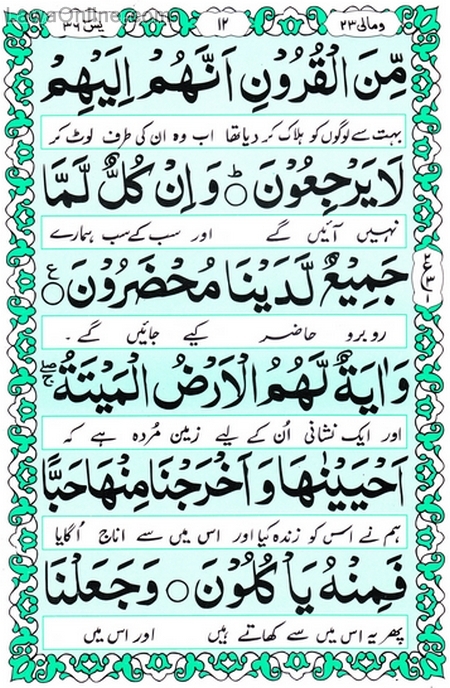 ومالی ۲۳
۱۲
یٰسٓ ۳۶
مِّنَ الْقُرُوْنِ اَنَّهُمْ اِلَيْهِمْ
بہت سے لوگوں کو ہلاک کر دیا تھا اب وہ ان کی طرف لوٹ کر
لَا يَرْجِعُوْنَ ۝ؕ وَاِنْ كُلٌّ لَّمَّا
نہیں آئیں گے اور سب کے سب ہمارے
جَمِيْعٌ لَّدَيْنَا مُحْضَرُوْنَ ۝ع
روبرو حاضر کیے جائیں گے ۔
وَاٰيَةٌ لَّهُمُ الْاَرْضُ الْمَيْتَةُ ۖۚ
اور ایک نشانی اُن کے لیے زمین مُردہ ہے کہ
اَحْيَيْنٰهَا وَاَخْرَجْنَا مِنْهَا حَبًّا
ہم نے اس کو زندہ کیا اور اس میں سے اناج اُگایا
فَمِنْهُ يَاْكُلُوْنَ ۝ وَجَعَلْنَا
پھر یہ اس میں سے کھاتے ہیں اور اس میں